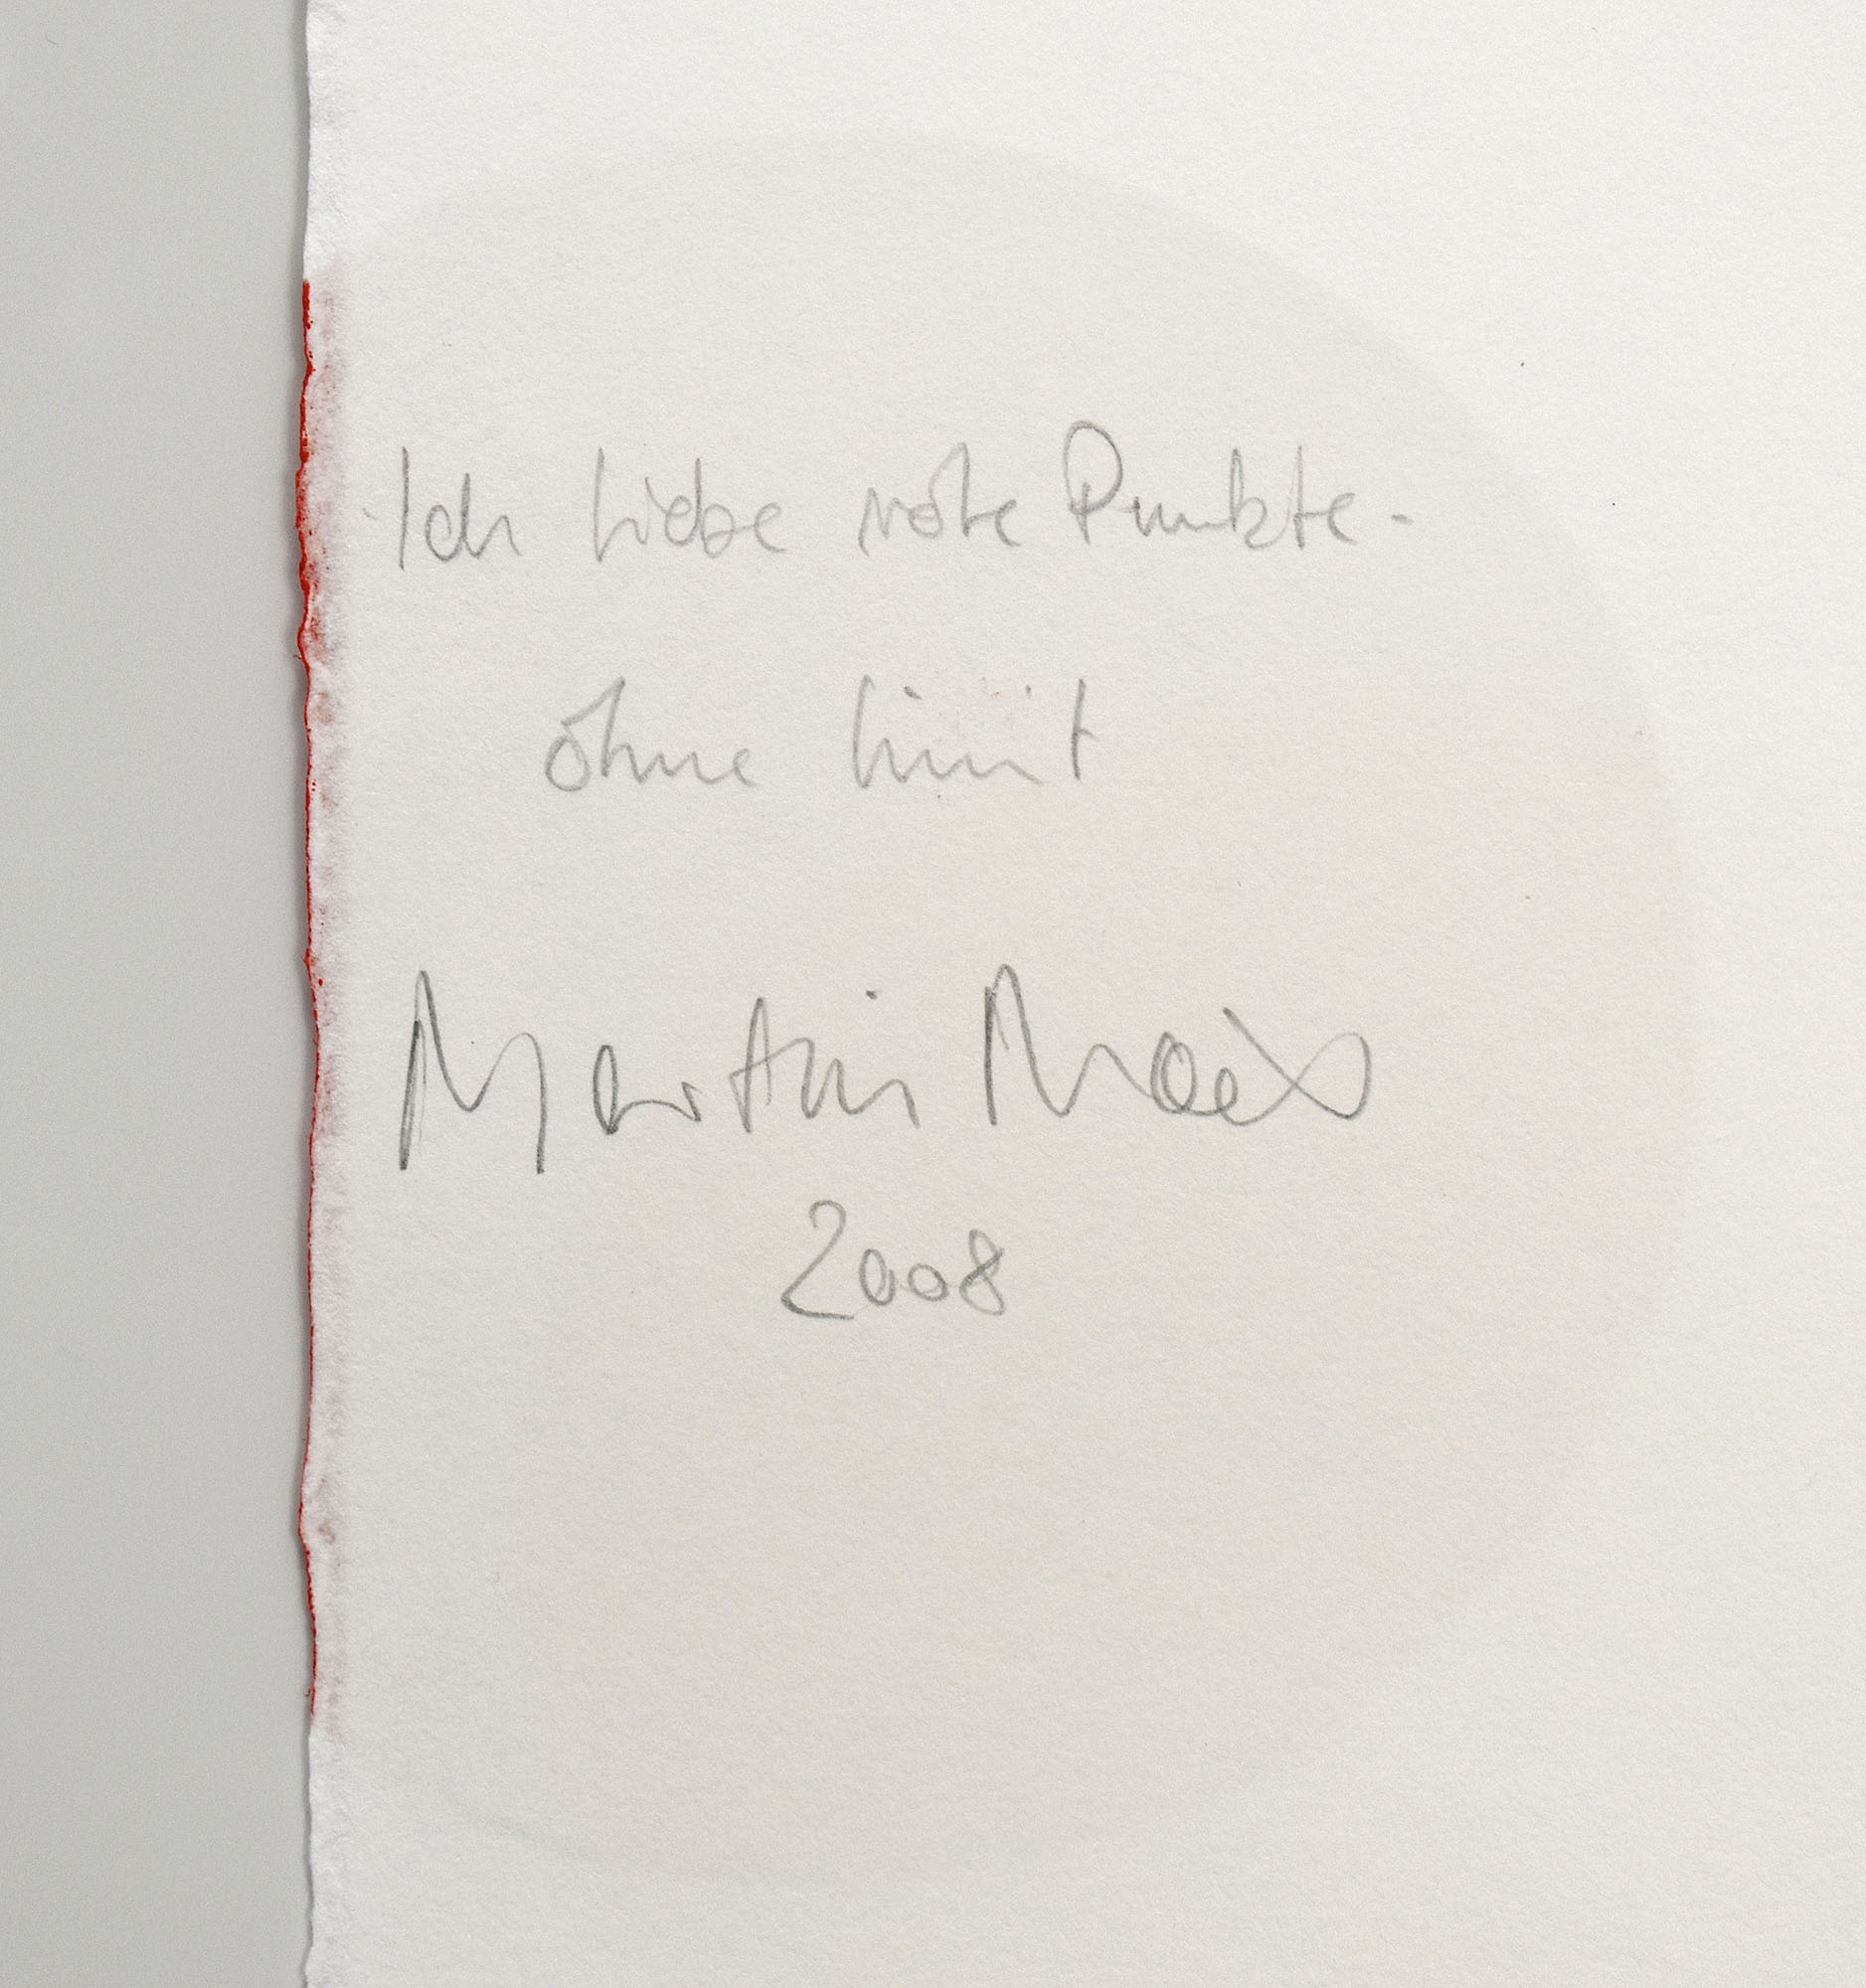 Ich liebe rote Punkte -
ohne limit
Martin
2008